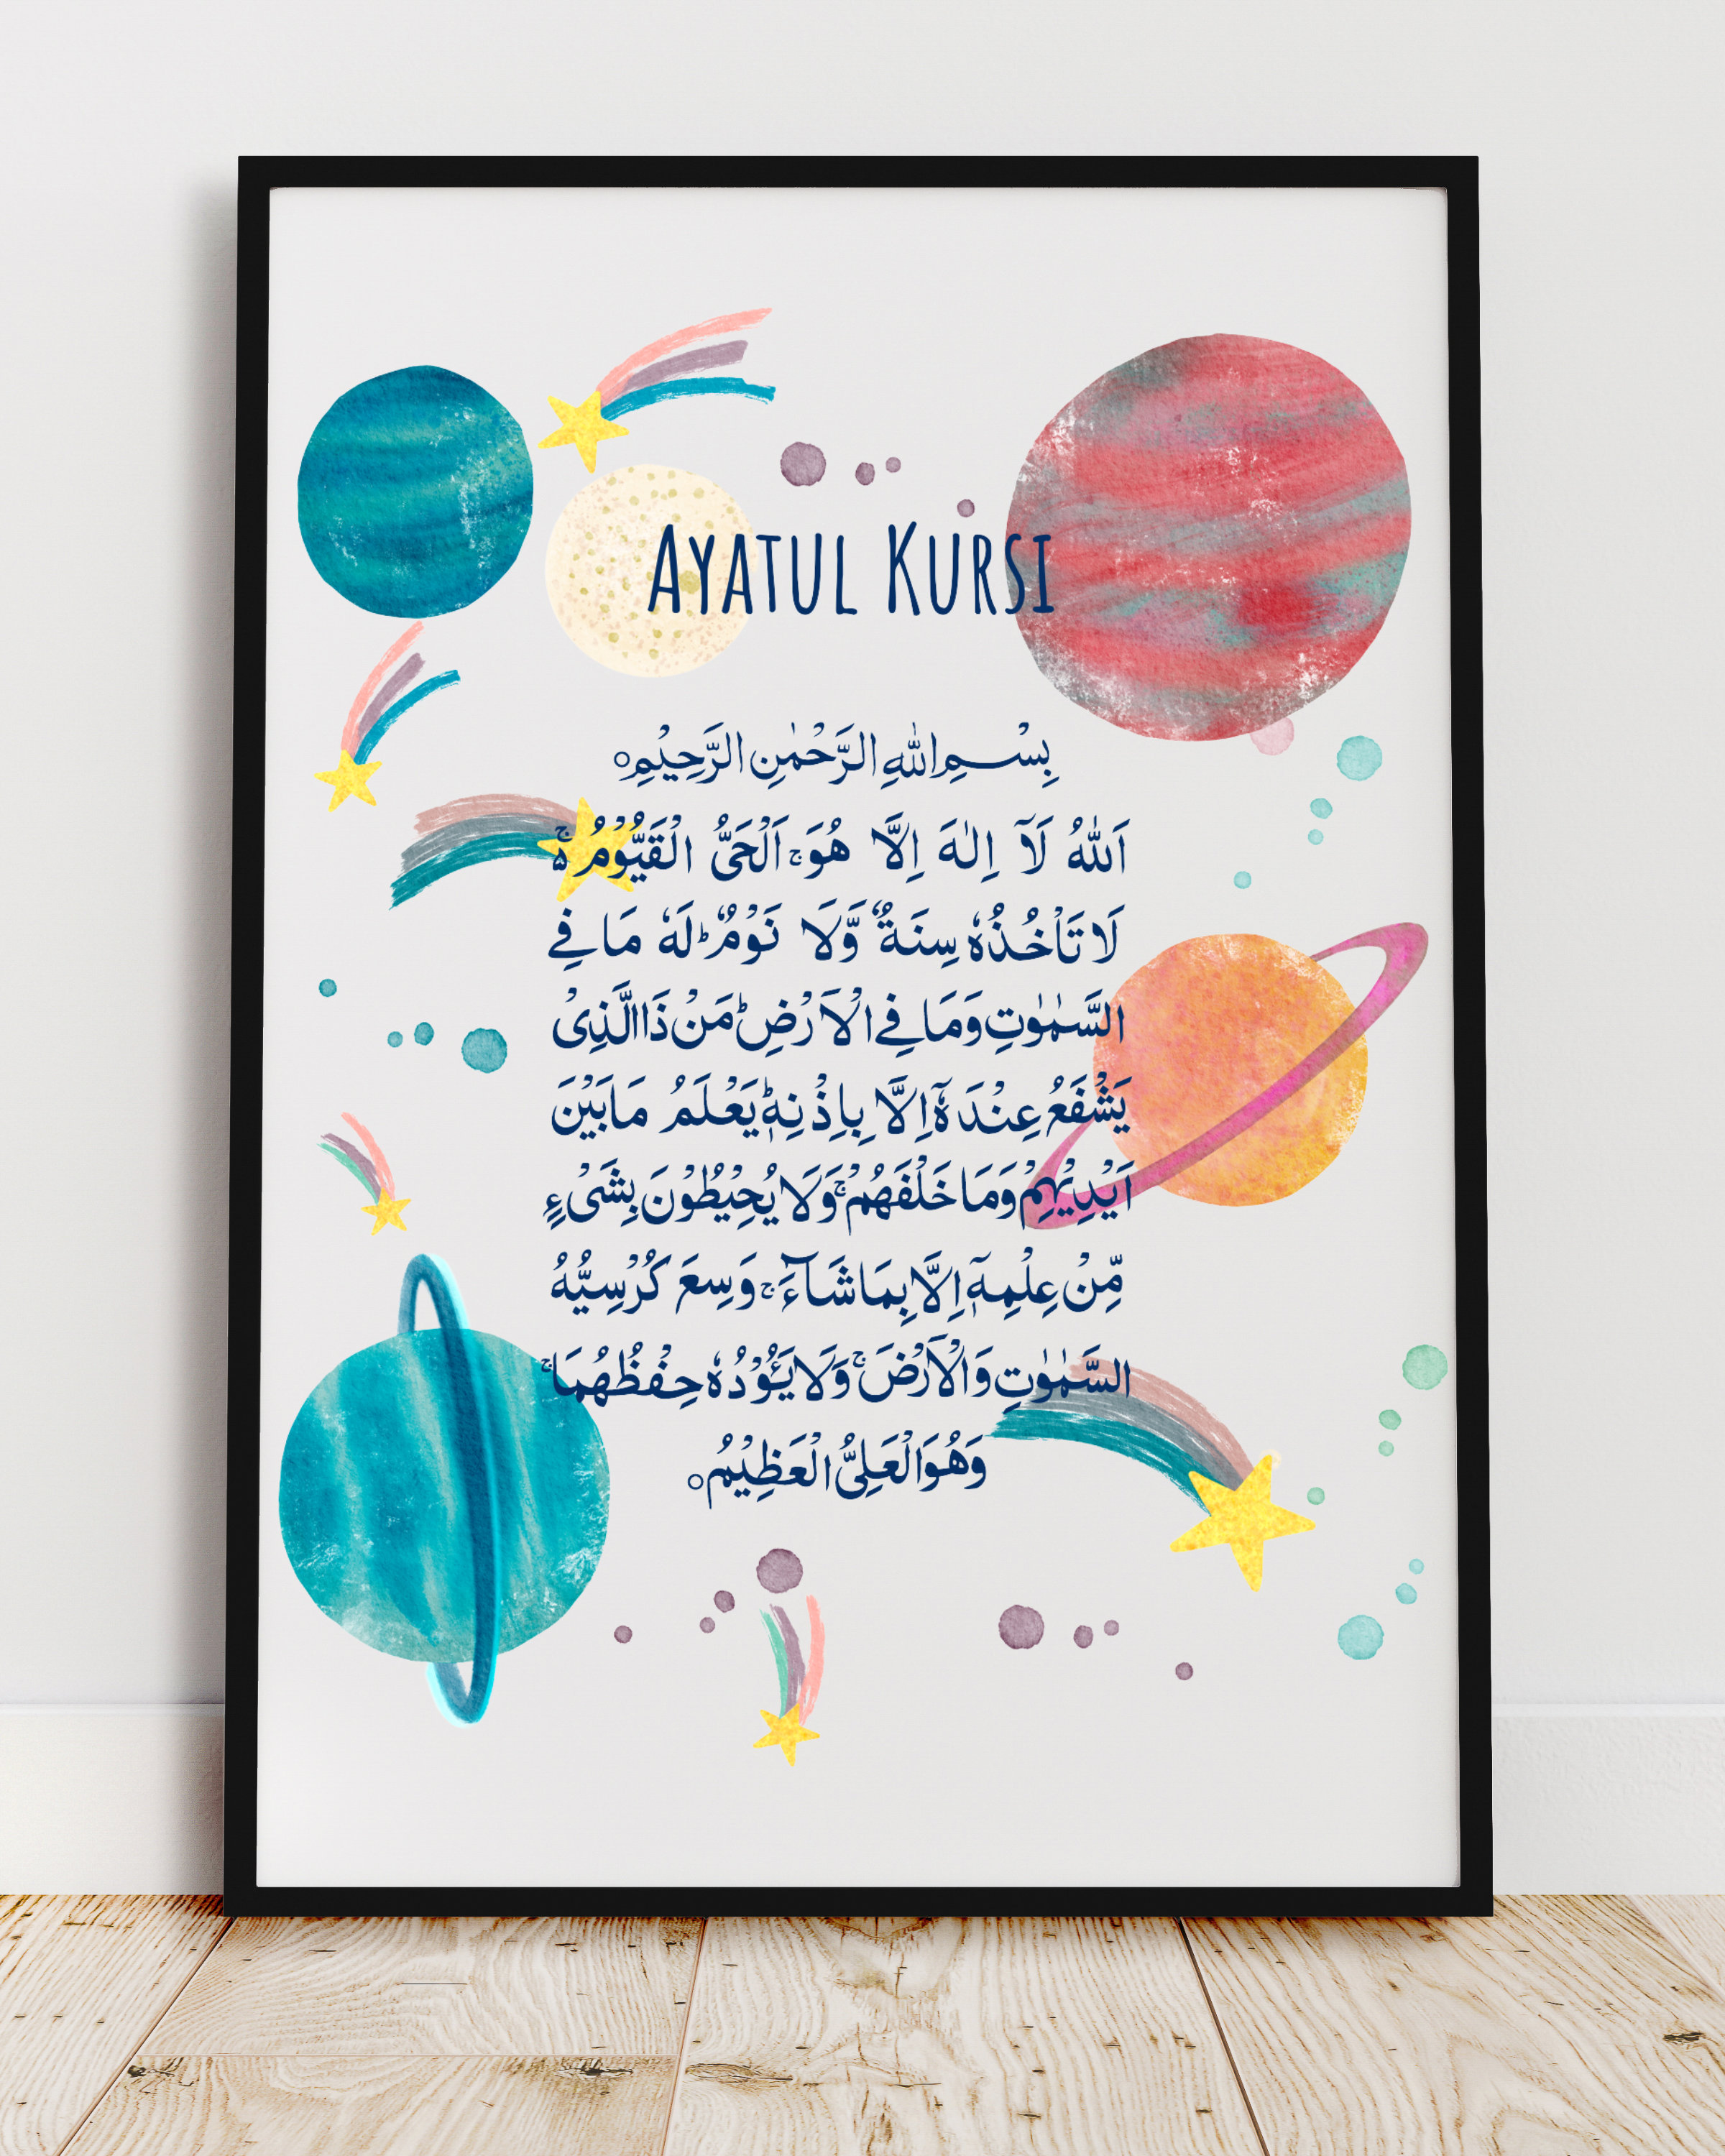 AYATUL KURSI
بِسْمِ اللّٰهِ الرَّحْمٰنِ الرَّحِيْمِ○
اَللّٰهُ لَآ اِلٰهَ اِلَّا هُوَۚ اَلْحَىُّ الْقَيُّوْمُ ۚ۬
لَا تَاْخُذُهٗ سِنَةٌ وَّلَا نَوْمٌؕ لَهٗ مَا فِى
السَّمٰوٰتِ وَمَا فِى الْاَرْضِؕ مَنْ ذَا الَّذِىْ
يَشْفَعُ عِنْدَهٗۤ اِلَّا بِاِذْنِهٖؕ يَعْلَمُ مَا بَيْنَ
اَيْدِيْهِمْ وَمَا خَلْفَهُمْۚ وَلَا يُحِيْطُوْنَ بِشَىْءٍ
مِّنْ عِلْمِهٖۤ اِلَّا بِمَا شَآءَۚ وَسِعَ كُرْسِيُّهُ
السَّمٰوٰتِ وَالْاَرْضَۚ وَلَا يَـُٔوْدُهٗ حِفْظُهُمَاۚ
وَهُوَ الْعَلِىُّ الْعَظِيْمُ○